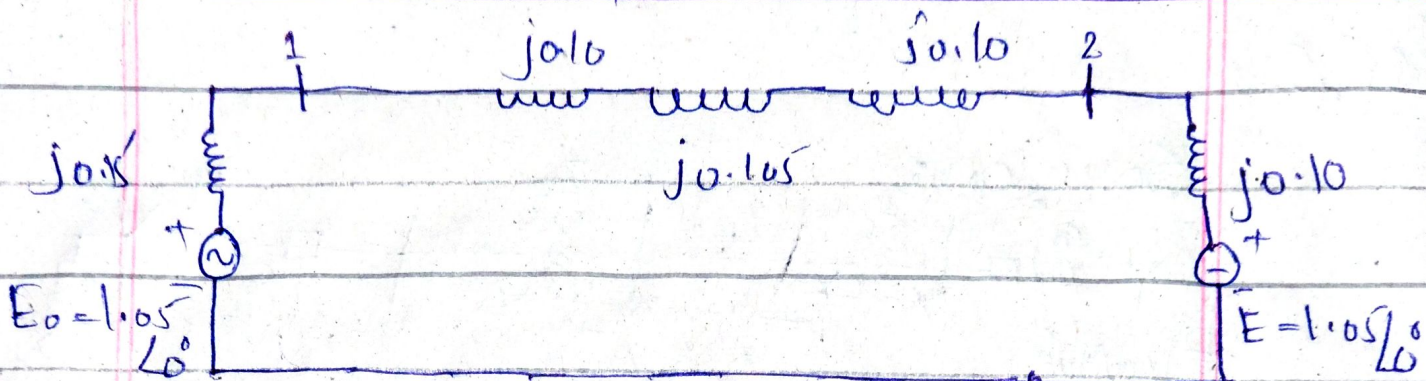 1 j0.10 j0.10 2
j0.15 j0.105 j0.10
+ +
E₀=1.05 E=1.05∠0°
∠0°